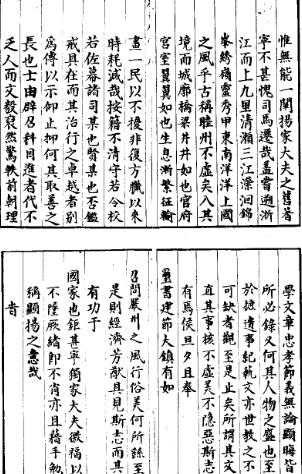 惟無能一闡揚家大夫之舊者
寧不甚愧司馬遷哉盖嘗遡浙
江而上九里清瀨三江濚洄錦
峯綉嶺靈秀甲東南洋洋上國
之風乎古稱睦州不虛矣入其
境而城廓橋梁井井如也官府
宮室翼翼如也生息漸繁征輸
畫一民以不擾非復方臘以来
時耗减哉按籍不清守若令校
若佐幕諸司某也賢某也否鑑
戒具在而其治行之卓越者别
爲傳以示仰止抑何其取善之
長也士由辟召科目進者代不
乏人而文毅裒然驚軼前朝理
學文章忠孝節義無論顯晦
所必錄又何其人物之盛也至
於摭遺事紀藝文亦世教之不
可缺者觀至是止矣所謂其文
直其事核不虛美不隱惡斯志
有焉侯旦夕且奉
璽書建節大鎮有如
召問嚴州之風行俗美何所録至
是則經濟芳猷具見斯志而其
有功于
國家也鉅甚寧獨家大夫徼福以
不隆厥緒即不肖亦且藉手勉
稱顯揚之意哉
旹